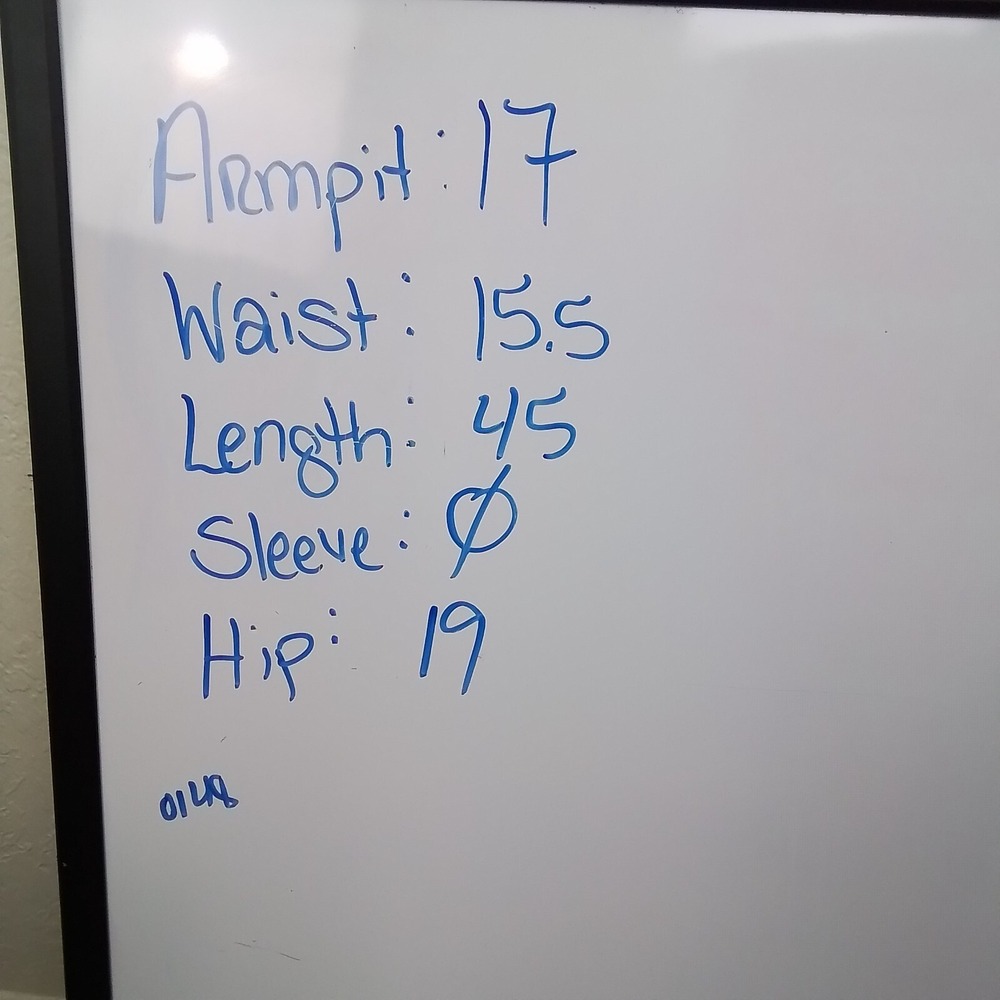 Armpit: 17
Waist: 15.5
Length: 45
Sleeve: Ø
Hip: 19
0148